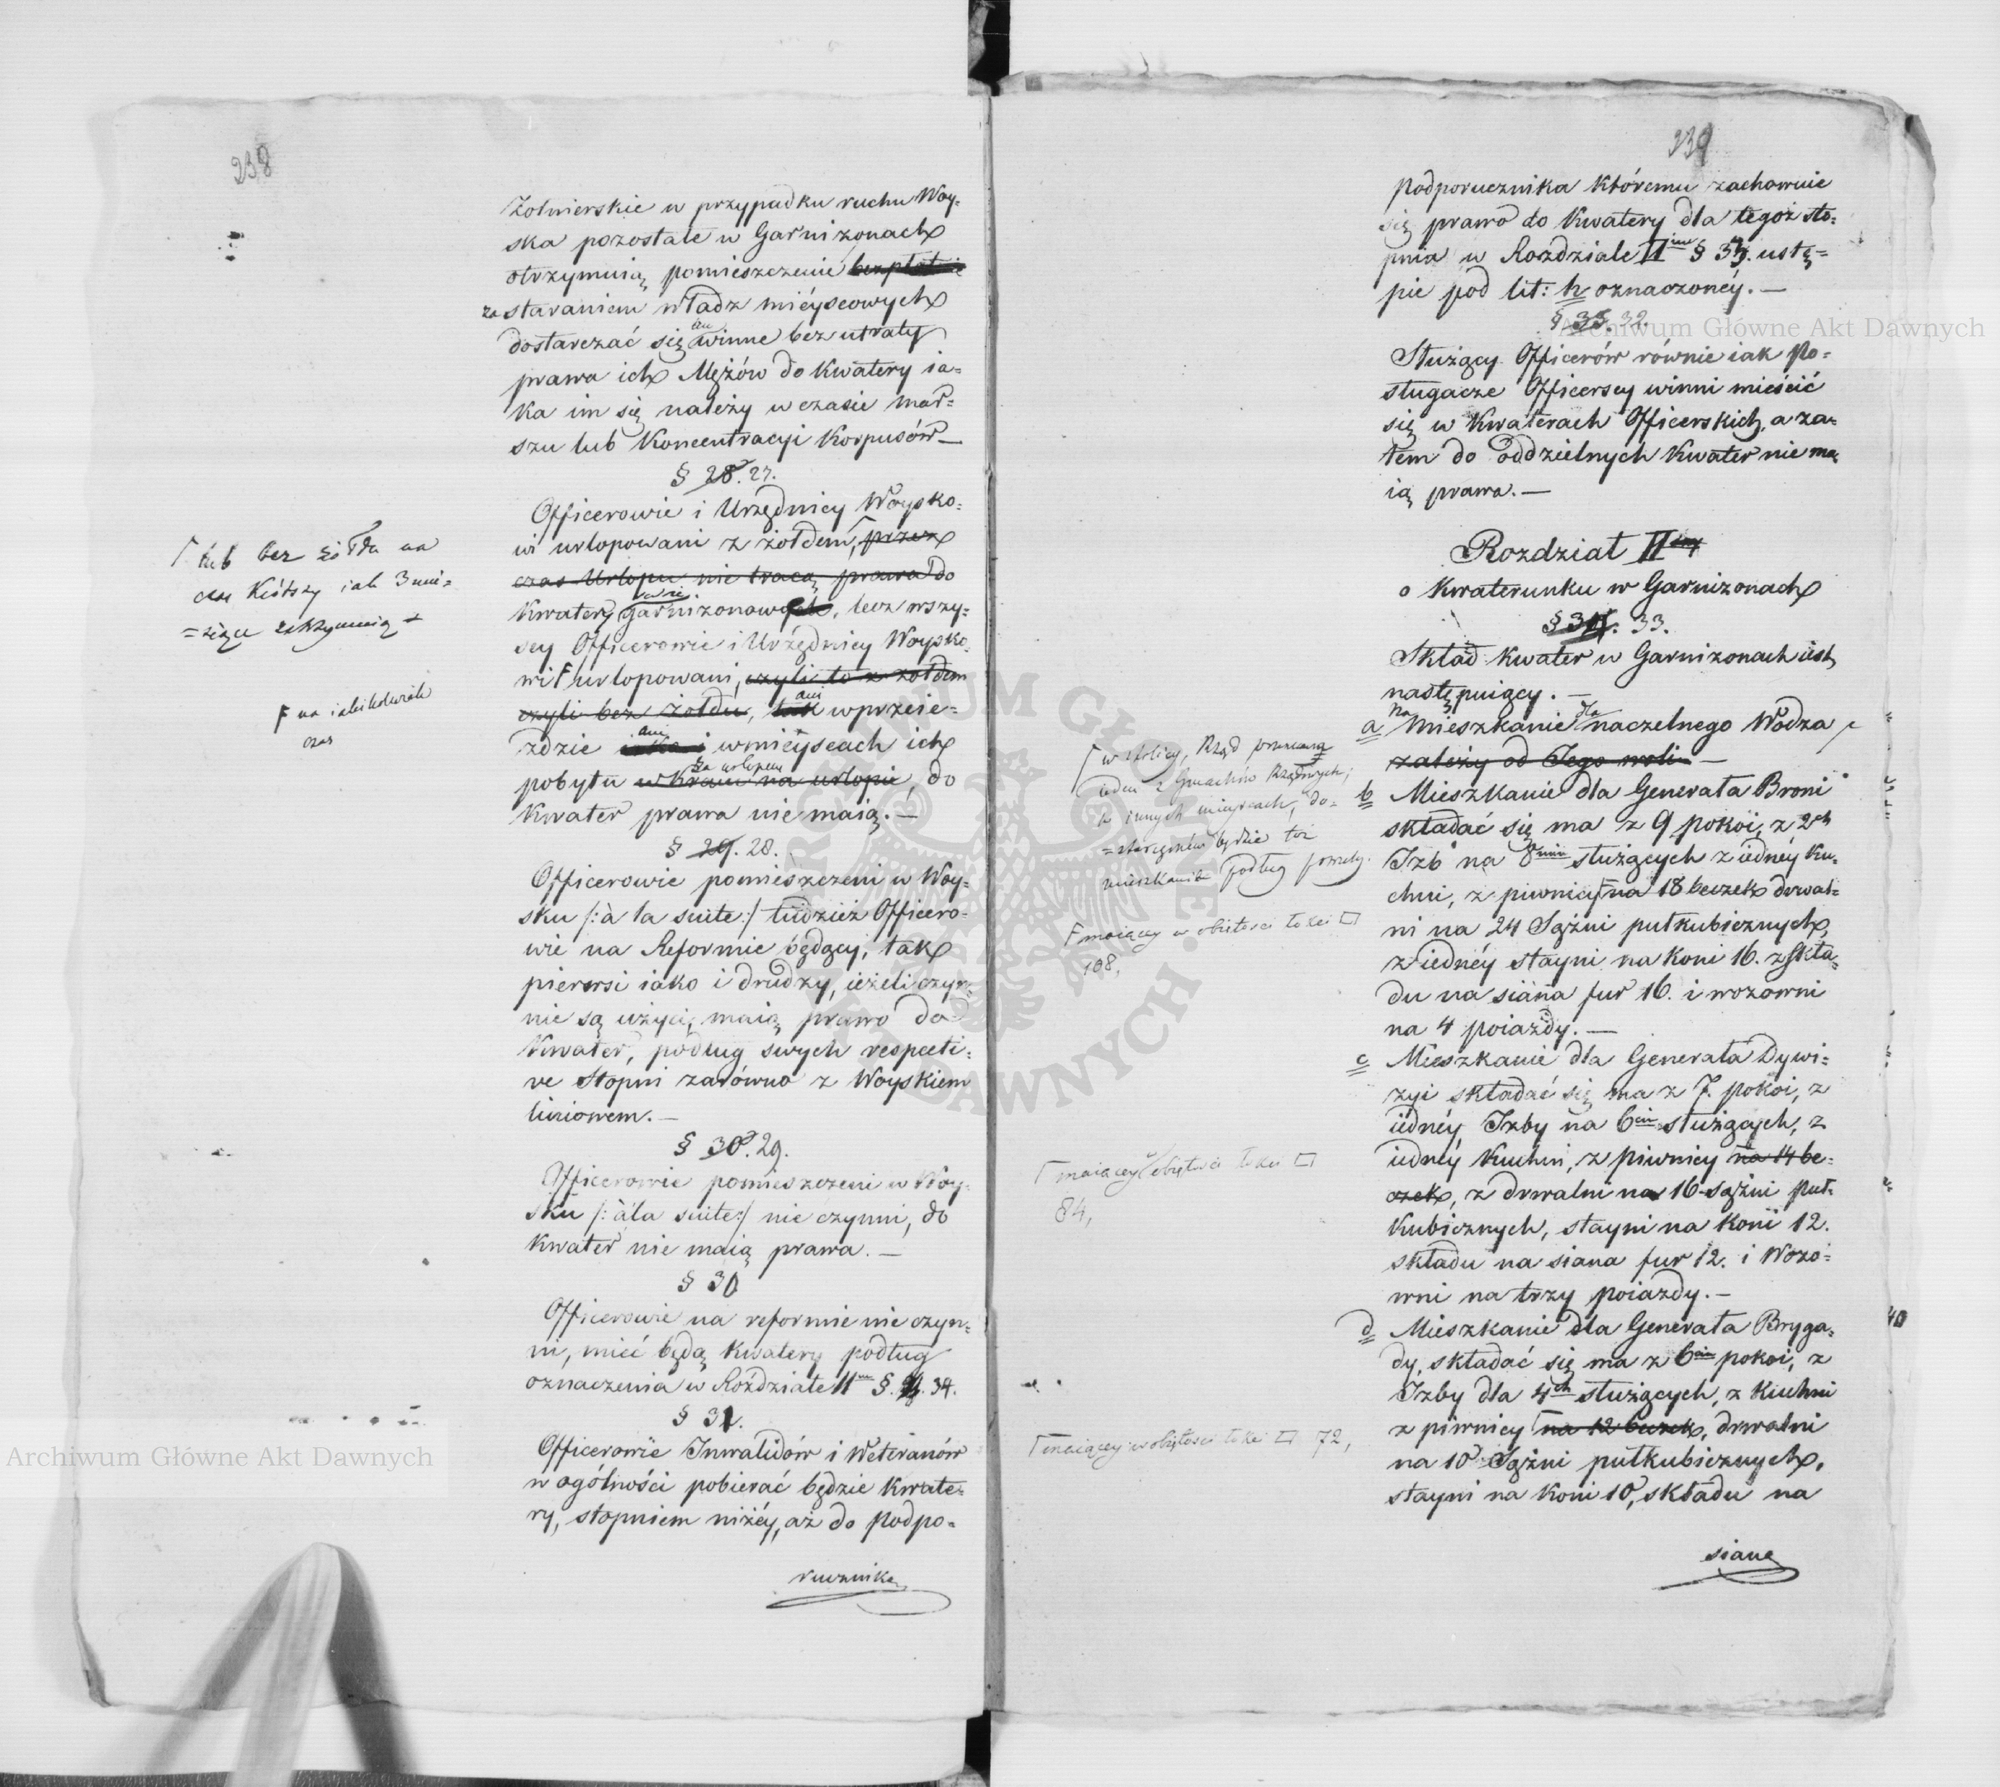 238
Żołnierskie w przypadku ruchu Woy-
ska pozostałe w Garnizonach
otrzymuią pomieszczenie bezpłatnie
za staraniem władz mieyscowych
dostarczać się im winne bez utraty
prawa ich Mężów do Kwatery ia-
ka im się należy w czasie mar-
szu lub Koncentracyi Korpusów —
§ 28. 27.
Officerowie i Urzędnicy Woysko-
wi urlopowani z żołdem, przez
czas Urlopu nie tracą prawa do
Kwatery Garnizonowych, lecz wszy-
scy Officerowie i Urzędnicy Woysko-
wi urlopowani, czyli to z żołdem
czyli bez żołdu, tak ani w prze-
ździe iako i ani w mieyscach ich
pobytu w Kraiu na urlopie za urlopem, do
Kwater prawa nie maią. —
§ 29. 28.
Officerowie pomieszczeni w Woy-
sku /: à la suite :/ tudzież Officero-
wie na Reformie będący, tak
pierwsi iako i drudzy, ieżeli czyn-
nie są użyci, maią prawo do
Kwater, podług swych respecti-
ve Stopni zarówno z Woyskiem
liniowem. —
§ 30. 29.
Officerowie pomieszczeni w Woy-
sku /: à la suite :/ nie czynni, do
Kwater nie maią prawa. —
§ 30
Officerowie na reformie nie czyn-
ni, mieć będą Kwatery podług
oznaczenia w Rozdziale II § 34.
§ 31.
Officerowie Inwalidów i Weteranów
w ogólności pobierać będzie Kwate-
ry, stopniem niżéy, aż do Podpo-
rucznika
lub bez żołdu na
czas Krótszy iak 3 mie-
=siące zatrzymuią
na iakikolwiek
czas
239
Podporucznika któremu zachowuie
się prawo do Kwatery dla tegoż sto-
pnia w Rozdziale II § 34. ustę-
pie pod lit: h oznaczonéy. —
§ 33. 32.
Służący Officerów równie iak Po-
sługacze Officerscy winni mieścić
się w Kwaterach Officerskich, a za-
tem do oddzielnych Kwater nie ma
ią prawa. —
Rozdział II
o Kwaterunku w Garnizonach
§ 34. 33.
Skład Kwater w Garnizonach iest
następuiący. —
a Na Mieszkanie dla naczelnego Wodza
zależy od Jego woli —
b Mieszkanie dla Generała Broni
składać się ma z 9 pokoi, z 2ch
Izb na 8 służących z iednéy Ku-
chni, z piwnicy na 18 beczek drwal-
ni na 24 Sążni pułkubicznych,
z iednéy stayni na koni 16. z skła-
du na siana fur 16. i wozowni
na 4 poiazdy. —
c Mieszkanie dla Generała Dywi-
zyi składać się ma z 7. pokoi, z
iednéy Izby na 6ciu służących, z
iednéy Kuchni, z piwnicy na 14 be-
czek, z drwalni na 16 sążni puł-
kubicznych, stayni na koni 12.
składu na siana fur 12. i Wozo-
wni na trzy poiazdy. —
d Mieszkanie dla Generała Bryga-
dy, składać się ma z 6ciu pokoi, z
Izby dla 4ch służących, z Kuchni
z piwnicy na 12 beczek, drwalni
na 10 Sążni pułkubicznych,
stayni na koni 10, składu na
siana
w stolicy, Rząd przeznaczy
ieden z Gmachów Rządowych;
w innych mieyscach, do-
=starczonem będzie toż
mieszkanie podług potrzeby.
maiącey w obiętości łokci □
108,
maiącey obiętości łokci □
84,
maiącey w obiętości łokci □ 72,
Archiwum Główne Akt Dawnych
Archiwum Główne Akt Dawnych
ARCHIWUM GŁÓWNE AKT DAWNYCH